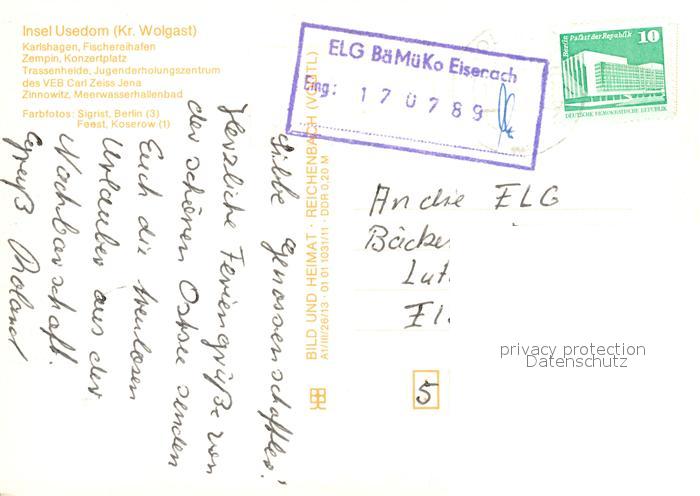 Insel Usedom (Kr. Wolgast)
Karlshagen, Fischereihafen
Zempin, Konzertplatz
Trassenheide, Jugenderholungszentrum
des VEB Carl Zeiss Jena
Zinnowitz, Meerwasserhallenbad
Farbfotos: Sigrist, Berlin (3)
Feest, Koserow (1)
Liebe Genossenschaftler!
Herzliche Feriengrüße von
der schönen Ostsee senden
Euch die treulosen
Urlauber aus der
Nachbarschaft.
Gruß Roland
BILD UND HEIMAT · REICHENBACH (VOGTL)
A1/III/26/13 · 01 01 1031/11 · DDR 0,20 M
ELG BäMüKo Eisenach
Eing: 170789
Berlin Palast der Republik
10
DEUTSCHE DEMOKRATISCHE REPUBLIK
An die ELG
Bäcke
Lut
EI
5
privacy protection
Datenschutz